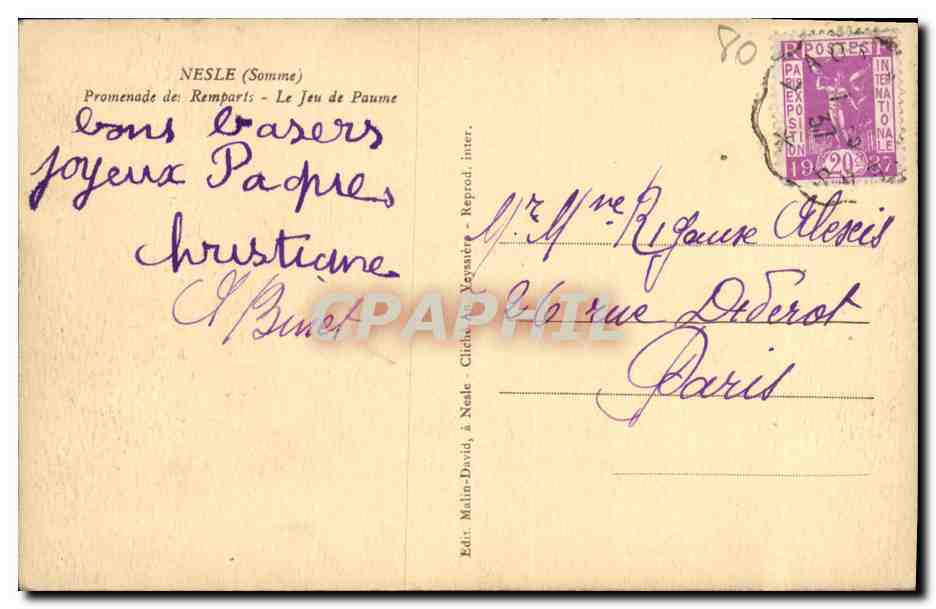 NESLE (Somme)
Promenade des Remparts - Le Jeu de Paume
bons basers
joyeux Paques
Christiane
Binet
80
POSTES
PARIS EXPOSITION
INTERNATIONALE
1937
20c
37
Mr Mme Rigaux Alexis
26 rue Diderot
Paris
Edit. Malin-David, à Nesle - Cliché Au. Veyssière - Reprod. inter.
CPAPHIL